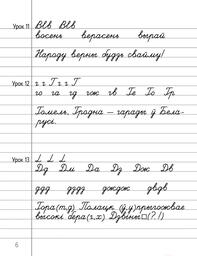 Урок 11
Ввв Ввв
восень верасень вырай
Народу верны будзь свайму!
Урок 12
г г Г г г Г
го га гд гож гв Ге Го Гр
Гомель, Гродна — гарады ў Бела-
русі.
Урок 13
Дд Дм Да Дз Дож Дв
ддд дддд дождж двдв
Гора(т,д) Полацк (ў,у)прыгожвае
высокі бера(г,х) Дзвіны(?!)
6